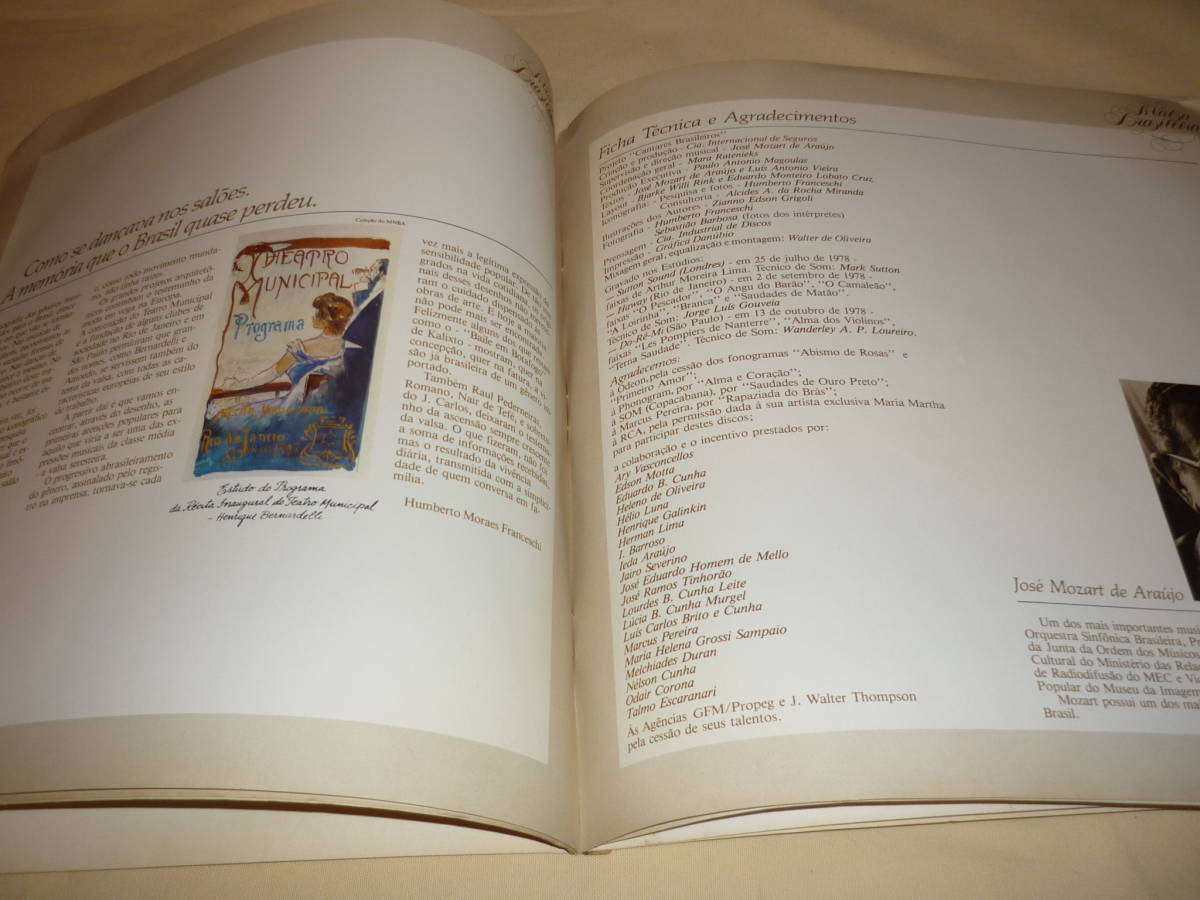 Como se dançava nos salões.
A memória que o Brasil quase perdeu.
Coleção do MNBA
co, como todo movimento munda-
no, tinha raízes.
Os grandes projetos arquitetô-
nicos ganham o testemunho da
moda em voga na Europa.
A construção do Teatro Municipal
e a fundação de alguns clubes de
sociedade no Rio de Janeiro e em
São Paulo permitiram que gran-
des nomes, como Bernardelli e
Amoedo, se servissem também do
tema da valsa, com todas as ca-
racterísticas européias de seu estilo
de trabalho.
A partir daí é que vamos en-
contrar, através do desenho, as
primeiras atenções populares para
aquilo que viria a ser uma das ex-
pressões musicais da classe média
- a valsa seresteira.
O progressivo abrasileiramento
do gênero, assinalado pelo regis-
tro na imprensa, tornava-se cada
THEATRO
MUNICIPAL
Programa
Rio de Janeiro
Estudo do Programa
da Récita Inaugural do Teatro Municipal
- Henrique Bernardelli
vez mais a legítima expressão da
sensibilidade popular. De tão arrai-
gados na vida cotidiana, os origi-
nais desses desenhos não merece-
ram o cuidado dispensado às
obras de arte. E hoje a memória
não pode mais ser reconstituída.
Felizmente alguns dos que restaram
como o - "Baile em Botafogo" -
de Kalixto - mostram, quer na
concepção, quer na fatura, a vi-
são já brasileira de um gênero im-
portado.
Também Raul Pederneiras,
Romano, Nair de Tefé, e sobretu-
do J. Carlos, deixaram o testemu-
nho da ascensão sempre crescente
da valsa. O que fizeram, não foi
a soma de informações recebidas,
mas o resultado da vivência
diária, transmitida com a simplici-
dade de quem conversa em fa-
mília.
Humberto Moraes Franceschi
Ficha Técnica e Agradecimentos
Projeto "Cantares Brasileiros"
Criação e produção - Cia. Internacional de Seguros
Supervisão e direção musical - José Mozart de Araújo
Coordenação geral - Mara Ratenieks
Produção Executiva - Paulo Antonio Magoulas
Textos - José Mozart de Araújo e Luís Antonio Vieira
Layout - Bjarke Willi Rink e Eduardo Monteiro Lobato Cruz
Iconografia: - Pesquisa e fotos - Humberto Franceschi
Consultoria - Alcides A. da Rocha Miranda
Ilustrações dos Autores - Zianno Edson Grigoli
Fotografia - Humberto Franceschi
Sebastião Barbosa (fotos dos intérpretes)
Prensagem - Cia. Industrial de Discos
Impressão - Gráfica Danúbio
Mixagem geral, equalização e montagem: Walter de Oliveira
Gravado nos Estúdios:
- Sutton Sound (Londres) - em 25 de julho de 1978 -
faixas de Arthur Moreira Lima. Técnico de Som: Mark Sutton
- Haway (Rio de Janeiro) - em 2 de setembro de 1978 -
faixas "O Pescador", "O Angu do Barão", "O Camaleão",
"A Loirinha", "Branca" e "Saudades de Matão".
Técnico de Som: Jorge Luís Gouveia
- Do-Ré-Mi (São Paulo) - em 13 de outubro de 1978 -
faixas "Les Pompiers de Nanterre", "Alma dos Violinos",
"Terna Saudade". Técnico de Som: Wanderley A. P. Loureiro.
Agradecemos:
à Odeon, pela cessão dos fonogramas "Abismo de Rosas" e
"Primeiro Amor";
à Phonogram, por "Alma e Coração";
à SOM (Copacabana), por "Saudades de Ouro Preto";
à Marcus Pereira, por "Rapaziada do Brás";
à RCA, pela permissão dada à sua artista exclusiva Maria Martha
para participar destes discos;
a colaboração e o incentivo prestados por:
Ary Vasconcellos
Edson Motta
Eduardo B. Cunha
Heleno de Oliveira
Hélio Luna
Henrique Galinkin
Herman Lima
I. Barroso
Ieda Araújo
Jairo Severino
José Eduardo Homem de Mello
José Ramos Tinhorão
Lourdes B. Cunha Leite
Lúcia B. Cunha Murgel
Luís Carlos Brito e Cunha
Marcus Pereira
Maria Helena Grossi Sampaio
Melchiades Duran
Nélson Cunha
Odair Corona
Talmo Escaranari
Às Agências GFM/Propeg e J. Walter Thompson
pela cessão de seus talentos.
Brasileira
José Mozart de Araújo
Um dos mais importantes musi
Orquestra Sinfônica Brasileira, Pr
da Junta da Ordem dos Músicos
Cultural do Ministério das Rela
de Radiodifusão do MEC e Vic
Popular do Museu da Imagem
Mozart possui um dos mai
Brasil.